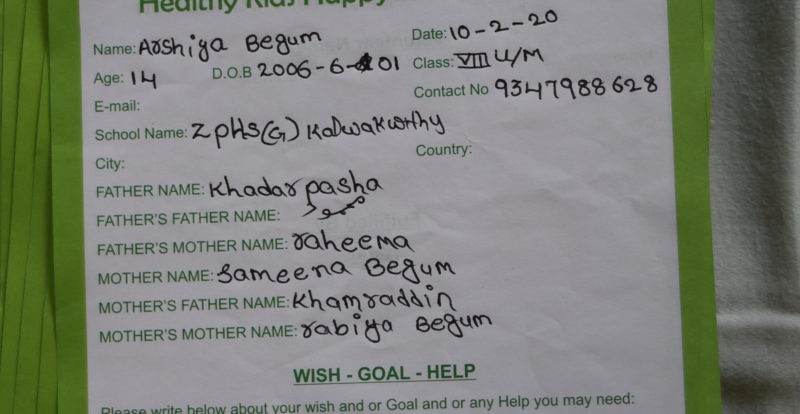 Healthy Kids Happy
Name: Arshiya Begum Date: 10-2-20
Age: 14 D.O.B 2006-6-01 Class: VIII U/M
E-mail: Contact No 9347988628
School Name: ZPHS(G) Kalwakurthy
City: Country:
FATHER NAME: Khadar pasha
FATHER'S FATHER NAME: محمود
FATHER'S MOTHER NAME: raheema
MOTHER NAME: Sameena Begum
MOTHER'S FATHER NAME: Khamraddin
MOTHER'S MOTHER NAME: rabiya Begum
WISH - GOAL - HELP
Please write below about your wish and or Goal and or any Help you may need: